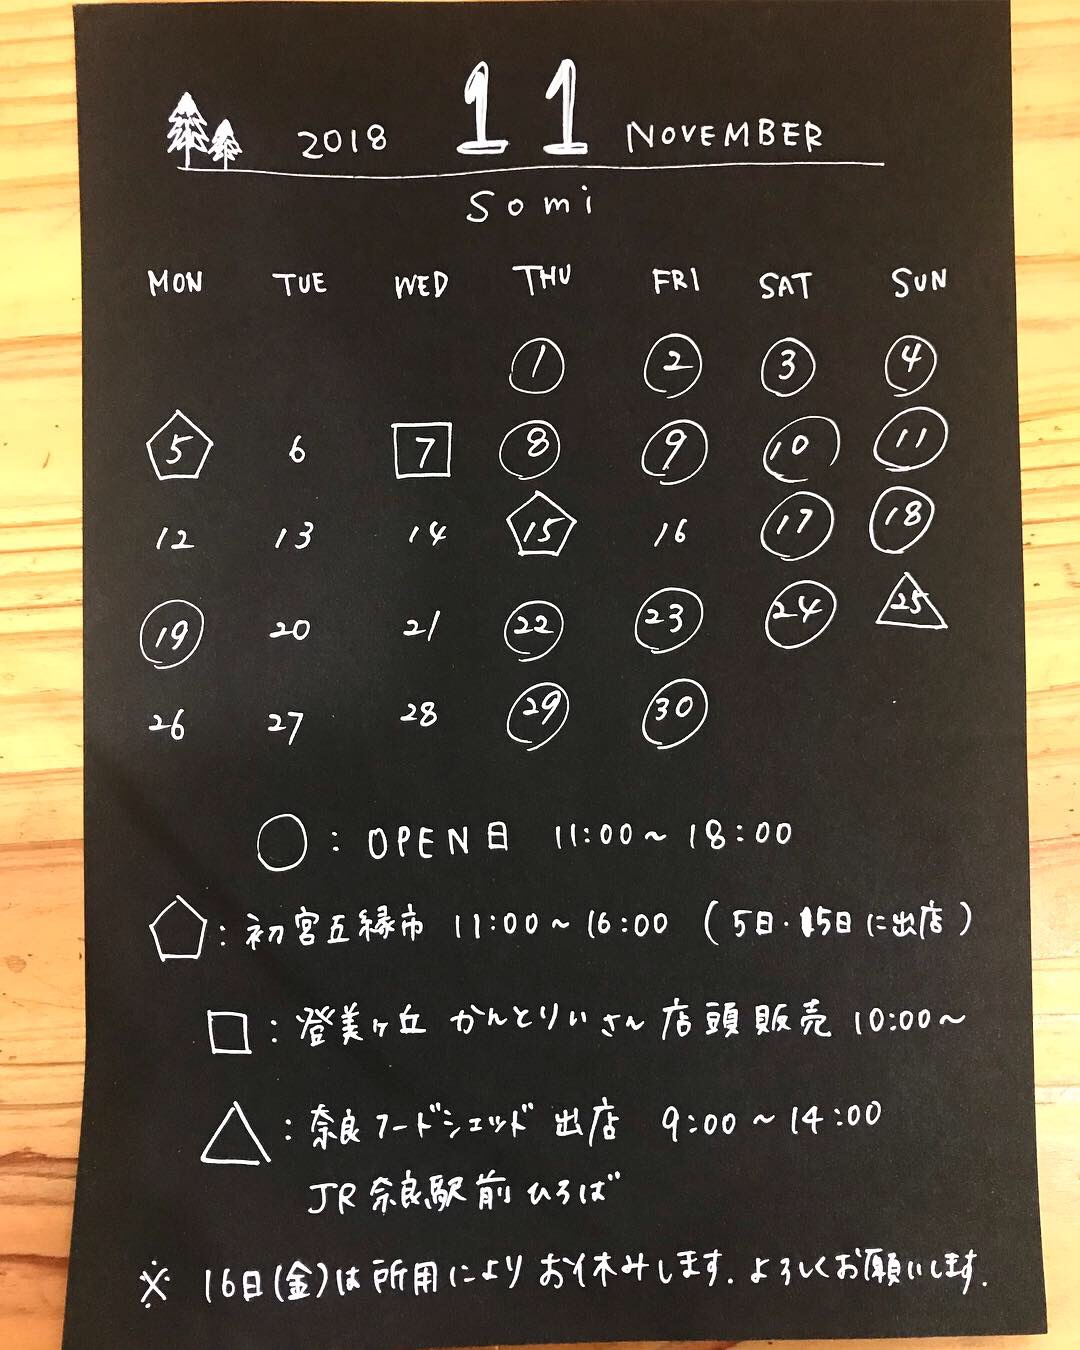 2018 11 NOVEMBER
Somi
MON TUE WED THU FRI SAT SUN
1 2 3 4
5 6 7 8 9 10 11
12 13 14 15 16 17 18
19 20 21 22 23 24 25
26 27 28 29 30
○：OPEN日 11:00〜18:00
⬠：初宮五縁市 11:00〜16:00 (5日・15日に出店)
□：登美ヶ丘 かんとりぃさん 店頭販売 10:00〜
△：奈良フードシェッド 出店 9:00〜14:00
JR奈良駅前ひろば
※ 16日(金)は所用によりお休みします.よろしくお願いします.